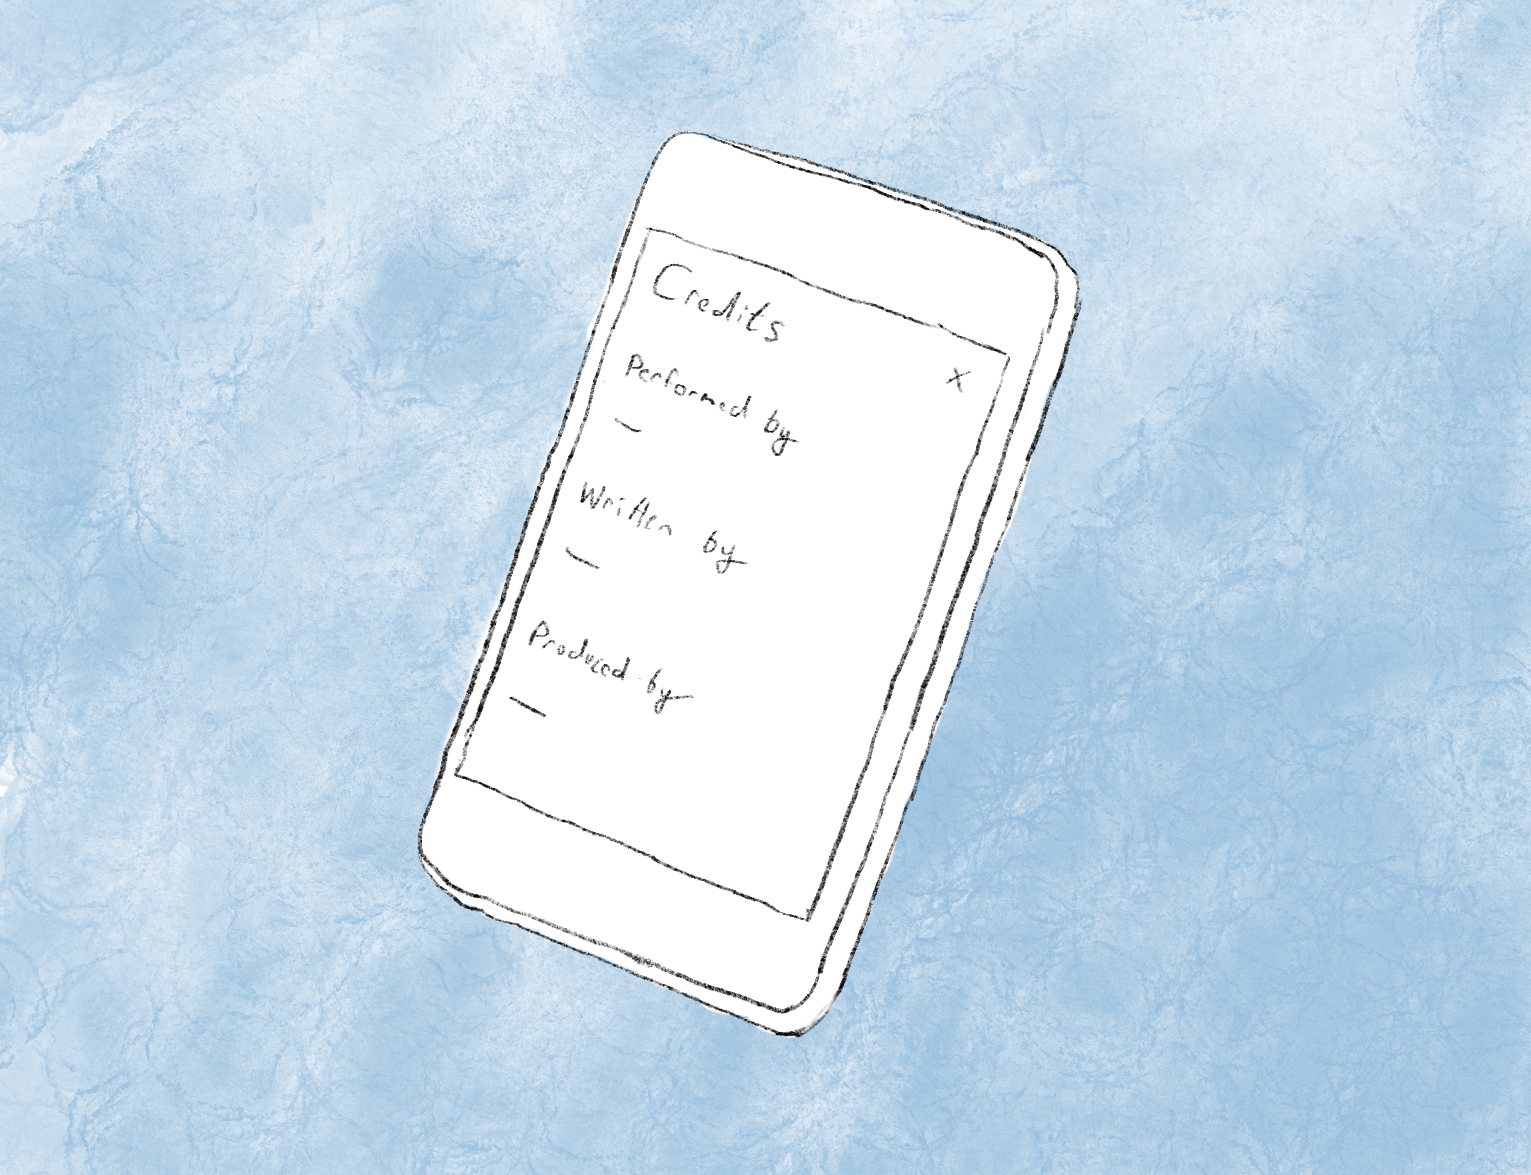 Credits
X
Performed by
—
Written by
—
Produced by
—